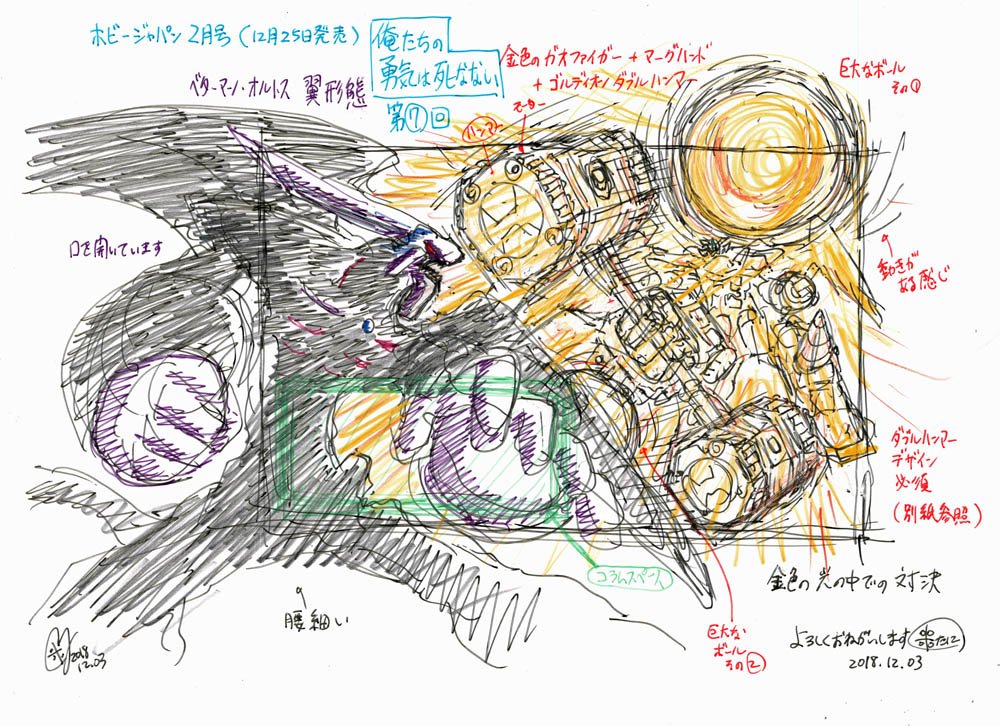 ホビージャパン 2月号(12月25日発売)
俺たちの
勇気は死なない
第⑦回
ベターマン・オルトス 翼形態
金色のガオファイガー+マーグハンド
+ゴルディオンダブルハンマー
ハンマー
モーター
巨大なボール
その①
口を開いています
動きが
ある感じ
ダブルハンマー
デザイン
必須
(別紙参照)
コラムスペース
金色の光の中での対決
腰細い
巨大な
ボール
その②
よろしくおねがいします
2018.12.03
2018
12.03